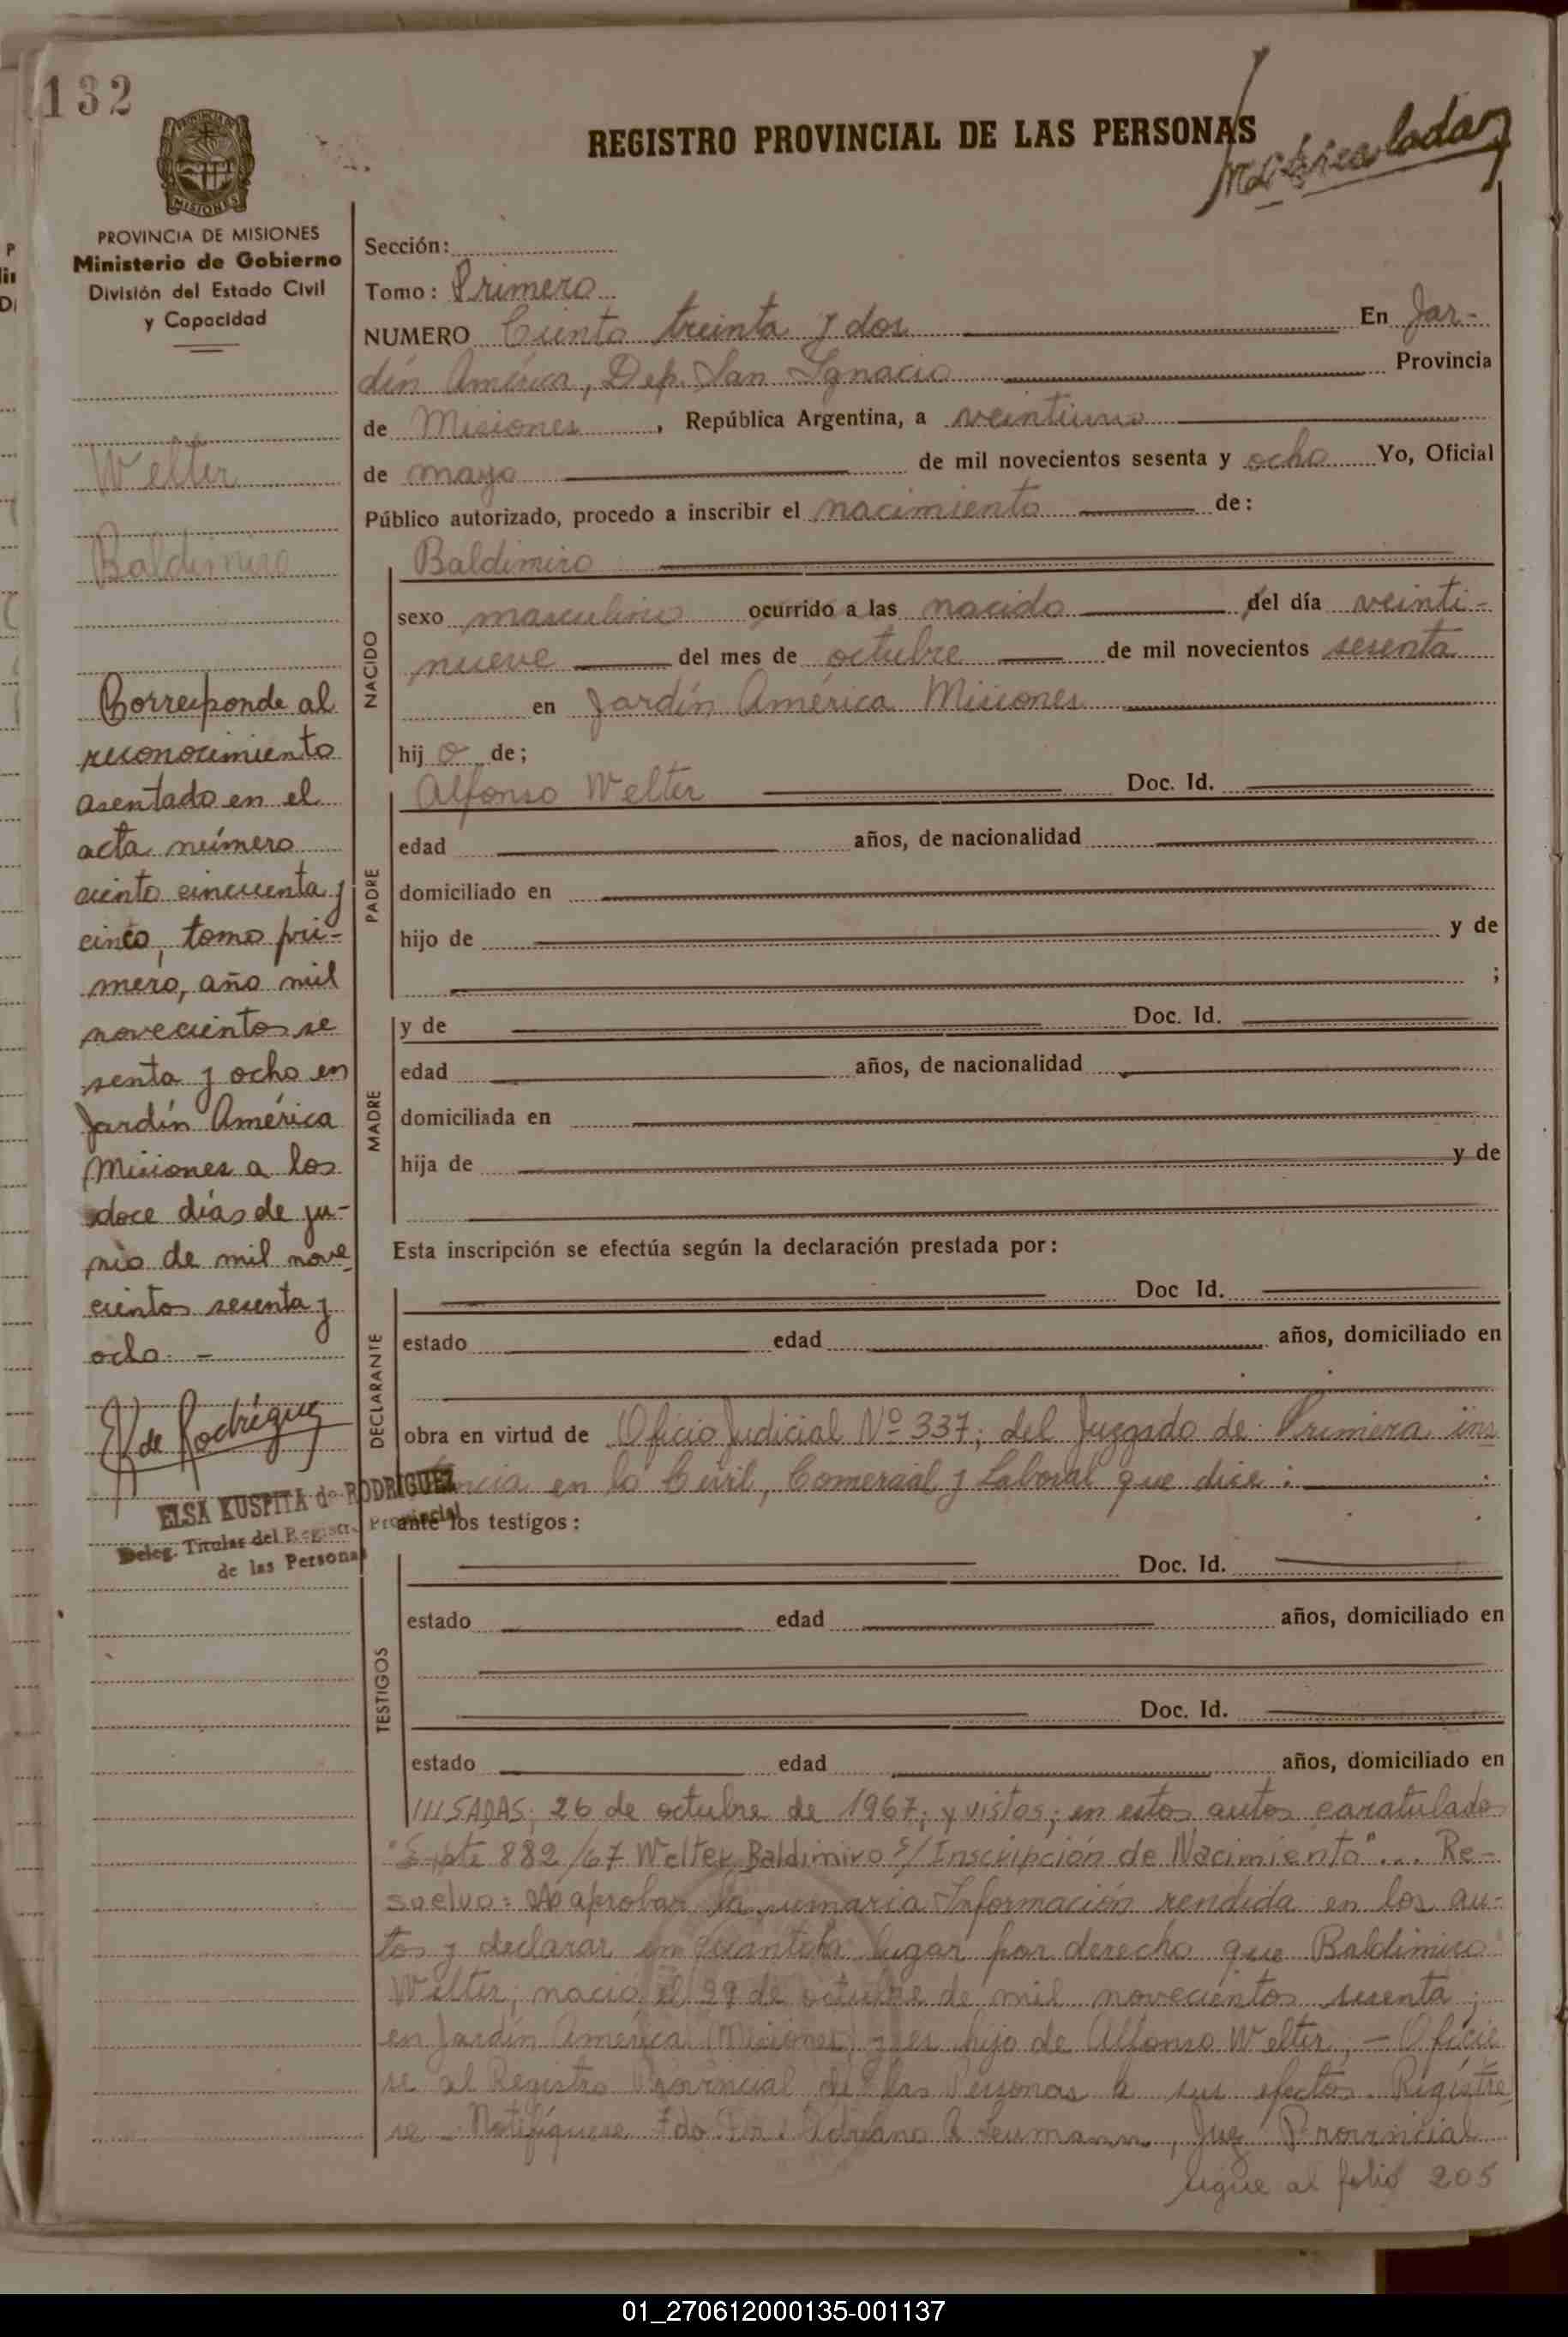 132
REGISTRO PROVINCIAL DE LAS PERSONAS
Matriculado
PROVINCIA DE MISIONES
Ministerio de Gobierno
División del Estado Civil
y Capacidad
Sección:
Tomo: Primero
NUMERO Ciento treinta y dos En Jar-
dín América, Dep. San Ignacio Provincia
de Misiones, República Argentina, a veintiuno
de mayo de mil novecientos sesenta y ocho Yo, Oficial
Público autorizado, procedo a inscribir el nacimiento de:
Welter
Baldimiro
Corresponde al
reconocimiento
asentado en el
acta número
ciento cincuenta y
cinco, tomo pri-
mero, año mil
novecientos se
senta y ocho en
Jardín América
Misiones a los
doce días de ju-
nio de mil nove
cientos sesenta y
ocho. -
E K de Rodríguez
ELSA KUSPITA de RODRIGUEZ
Deleg. Titular del Registro Provincial
de las Personas
NACIDO
Baldimiro
sexo masculino ocurrido a las nacido del día veinti-
nueve del mes de octubre de mil novecientos sesenta
en Jardín América Misiones
hij o de;
PADRE
Alfonso Welter Doc. Id.
edad años, de nacionalidad
domiciliado en
hijo de y de
;
MADRE
y de Doc. Id.
edad años, de nacionalidad
domiciliada en
hija de y de
Esta inscripción se efectúa según la declaración prestada por:
DECLARANTE
Doc Id.
estado edad años, domiciliado en
obra en virtud de Oficio Judicial Nº 337; del Juzgado de Primera ins
tancia en lo Civil, Comercial y Laboral que dice:
ante los testigos:
TESTIGOS
Doc. Id.
estado edad años, domiciliado en
Doc. Id.
estado edad años, domiciliado en
///SADAS; 26 de octubre de 1967; y vistos; en estos autos caratulados
"Expte 882/67 Welter Baldimiro s/Inscripción de Nacimiento"... Re-
suelvo: aprobar la sumaria Información rendida en los au-
tos y declarar en cuanto ha lugar por derecho que Baldimiro
Welter, nació el 29 de octubre de mil novecientos sesenta;
en Jardín América (Misiones) y es hijo de Alfonso Welter; - Ofície
se al Registro Provincial de las Personas a sus efectos. Regístre
se - Notifíquese Fdo Adriano Juez Provincial
sigue al folio 205
01_270612000135-001137